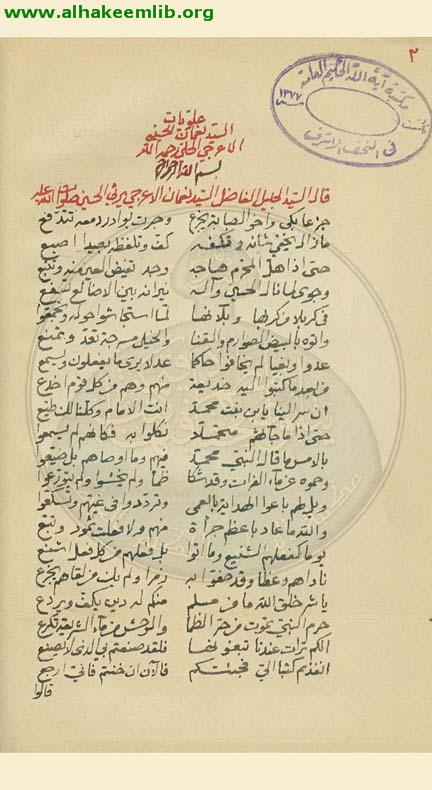 www.alhakeemlib.org
٣
مكتبة آية الله الحكيم العامة
١٣٧٧
في النجف الأشرف
علويات
السيد نعمان الحسيني
الاعرجي الحلي رحمه الله
بسم الله الرحمن الرحيم
قال السيد الجليل الفاضل السيد نعمان الاعرجي يرثي الحسين صلوات الله عليه
جزعا بكى واخو الصبابة يجزع وجرت بوادر دمعه تتدفع
ما زال يخفي شانه كف وتلفظه اصبع
حتى اذا هل المحرم هاجه وجد تفيض العين منه وتتبع
وجوى لما نال الحسين وآله نيرانه بين الاضالع تسفع
في كربلا من كربها وبلائها لما استجاشوا حوله وتجمعوا
واتوه بالبيض الصوارم والقنا والخيل مسرجة تقد وتمنع
عدوا وبغيا لم يخافوا حاكما عدلا يرى ما يفعلون ويسمع
من بعد ما كتبوا اليه خديعة منهم وهم من كل قوم اخدع
ان سر الينا يابن بنت محمد انت الامام وكلنا لك طيع
حتى اذا ما جاءهم نكلوا به فكانهم لم يسمعوا
بالامس ما قال النبي محمد فيهم وما اوصاهم بل ضيعوا
وحموه عن ماء الفرات وقد شكا ظما ولم يخشوا ولم يتورعوا
ويل لهم باعوا الهداية بالعمى وترددوا في غيهم
والله ما عاد باعظم جراة منهم ولا فعلت ثمود وتبع
يوما كفعلهم الشنيع وما اتوا بل فعلهم من كل فعل اشنع
ناداهم وعظا وقد حفوا به زمرا ولم يك من لقاهم يجزع
يا شر خلق الله ما من مسلم منكم له دين يكف ويردع
حرم النبي تموت من حر الظما والوحش من ماء الشريعة تكرع
الكم ترات عندنا تبغونها فلقد صنعتم بي الذي لا يصنع
انفذتم كتبا الي فجئتكم فالآن ان خنتم فاني ارجع
قالوا